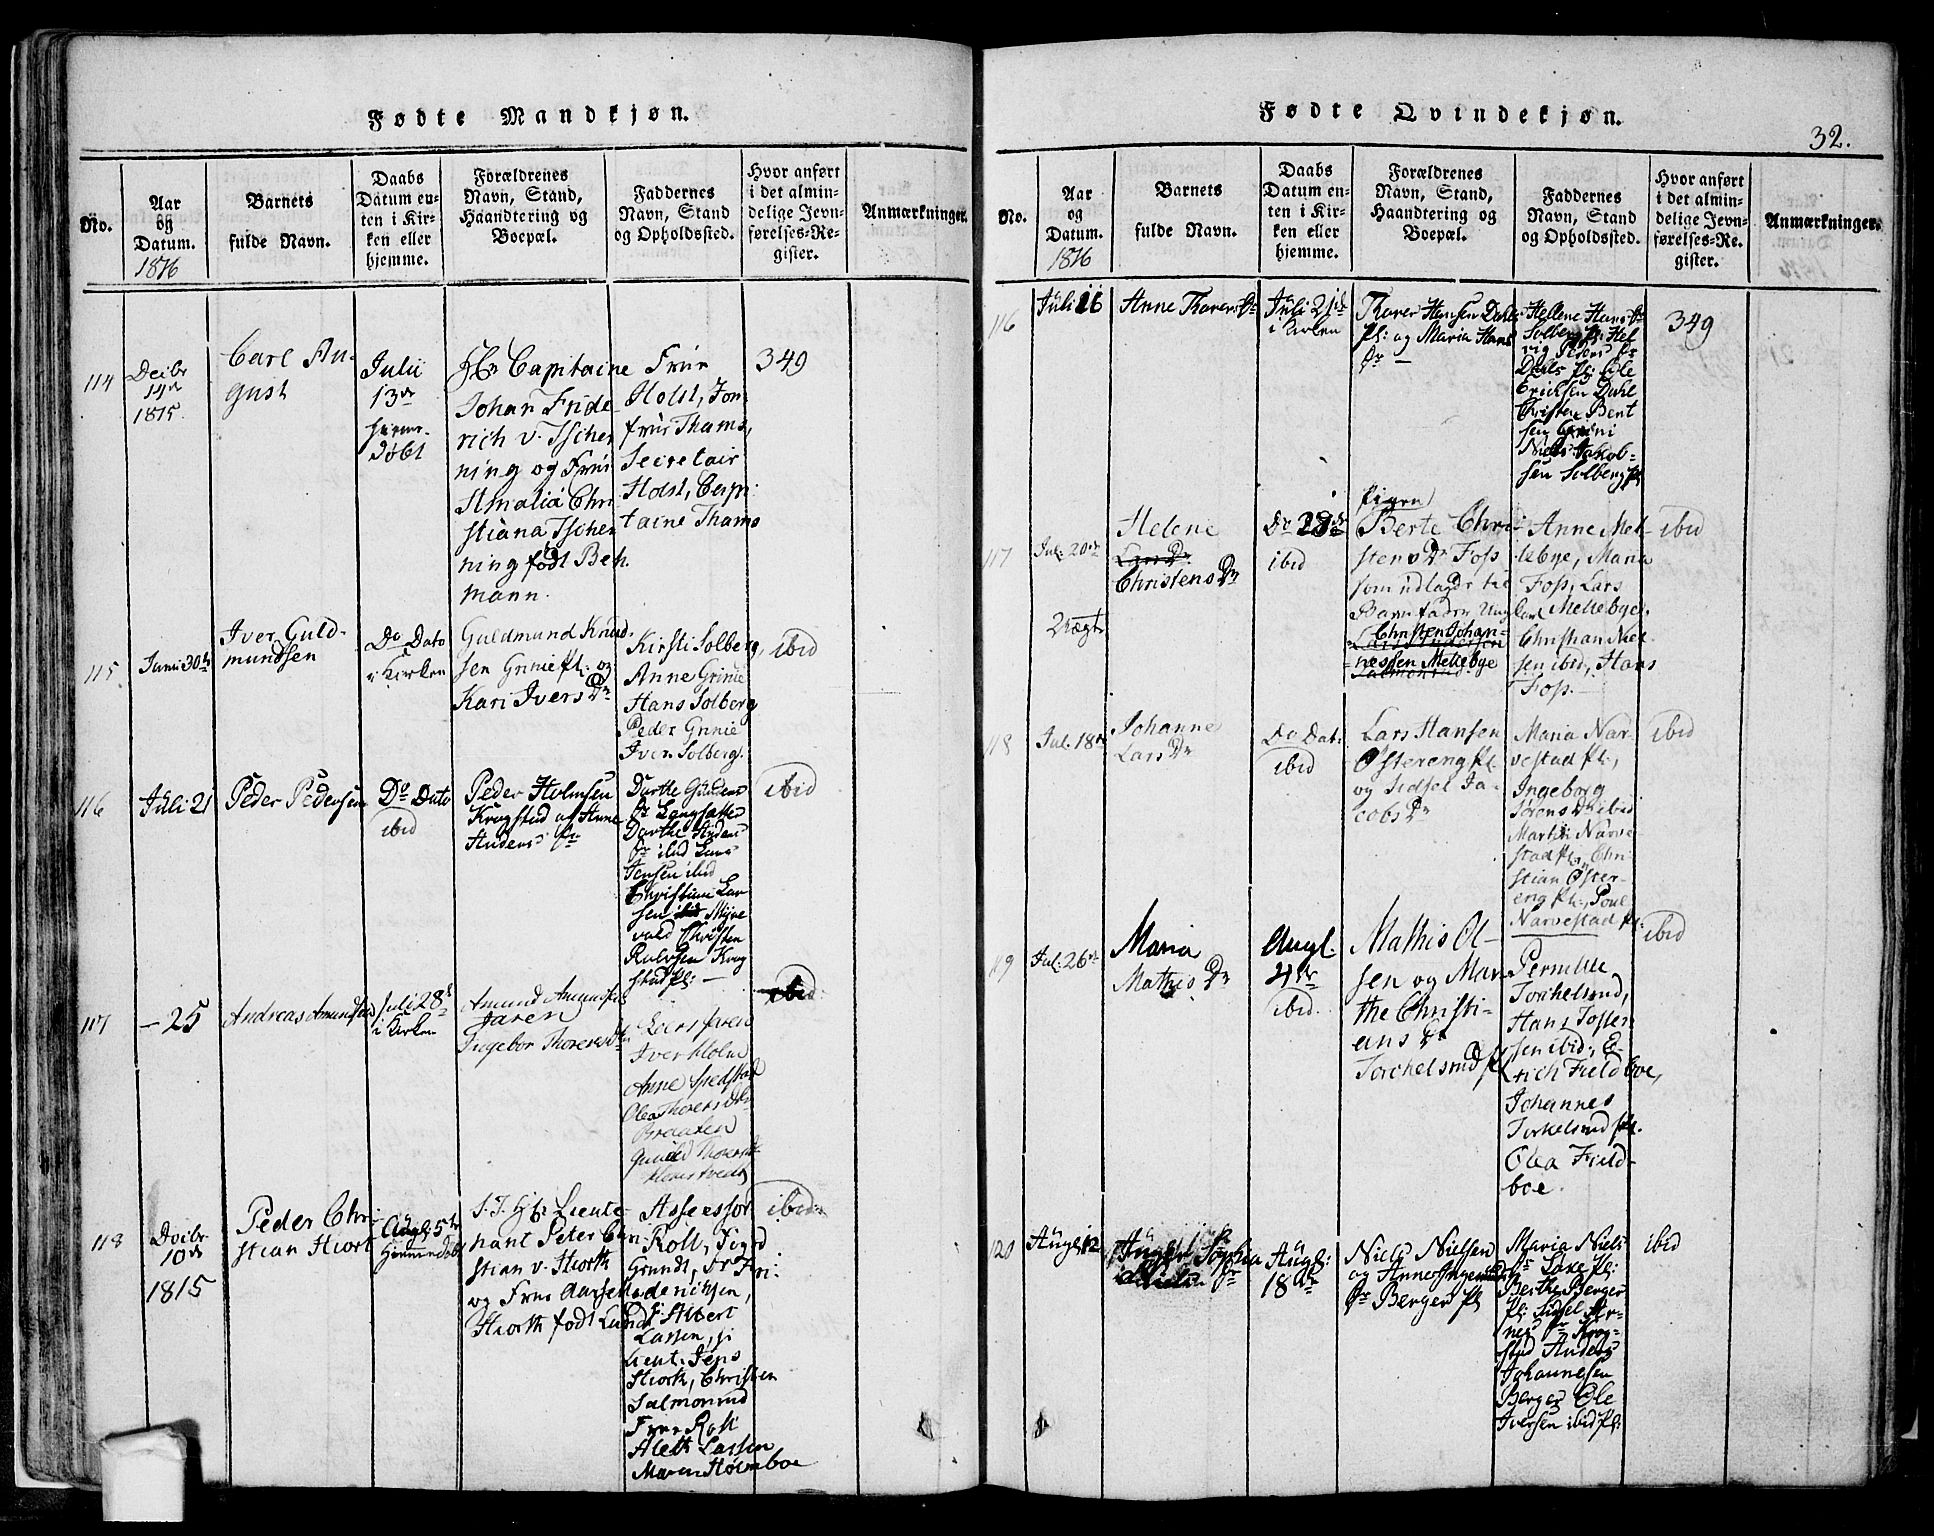 Fødte Mandkjøn.
No.
Aar
og
Datum.
1816
Barnets
fulde Navn.
Daabs
Datum en-
ten i Kir-
ken eller
hjemme.
Forældrenes
Navn, Stand,
Haandtering og
Boepæl.
Faddernes
Navn, Stand
og Opholdssted.
Hvor anført
i det almin-
delige Jevn-
førelses-Re-
gister.
Anmærkninger.
114
Decbr
14de
1815.
Carl Au-
gust
Julii
13de
hjemme-
døbt
Hr Capitaine
Johan Fride-
rich v. Tscher
ning og Frue
Amalia Chri
stiana Tscher
ning født Beh
mann.
Frue
Holst, Jom
frue Thams,
Secretair
Holst, Capi
taine Thams
349
115.
Juni 30te
Iver Guld-
mundsen
Do Dato
i Kirken
Guldmund Knud-
sen Grinie pl: og
Kari Ivers Dr
Kirsti Solberg,
Anne Grinie
Hans Solberg
Peder Grinie
Iver Solberg.
ibid
116
Juli 21
Peder Pedersen
Do Dato
ibid
Peder Holmsen
Krogstud og Anne
Anders Dr
Dorthe Gulden
Dr Langsætter
Dorthe Anders
Dr ibid Lars
Jensen ibid
Christian Lar
sen ibid Myre
vald Christen
Krog
stud pl: —
ibid
117
— 25
Andreas Amundsen
Juli 28de
i Kirken
Amund Amundsen
Jaren
Ingebor Thoresdtr
Jaren
Iver Holm
Anne
Olea Thoresdtr
Braaten
Gunild Thoresdtr
ibid.
118
Decbr
10de
1815
Peder Chri
stian Hiort
Augl. 5te
Hjemmedøbt
S. T. Hr Lieute-
nant Peter Chri
stian v. Hiorth
og Frue
Hiorth født Lund
Assessor
Roll, Sigvd
Grundt, Fr Fri
derichsen,
Albert
Lassen,
Lieut: Jens
Hiorth, Christen
Salmonrud
Frue Roll
Aleth Lassen
Maren Holmboe
ibid.
Fødte Qvindekjøn.
32.
No.
Aar
og
Datum.
1816
Barnets
fulde Navn.
Daabs
Datum en-
ten i Kir-
ken eller
hjemme.
Forældrenes
Navn, Stand,
Haandtering og
Boepæl.
Faddernes
Navn, Stand
og Opholdssted.
Hvor anført
i det almin-
delige Jevn-
førelses-Re-
gister.
Anmærkninger.
116
Juli 11
Anne Thorers Dr
Juli 21de
i Kirken
Thorer Hansen Dahls
pl: og Maria Hans
Dr —
Hellene Hans Dr
Solberg pl: Hel
vig Peders Dr
Dahls pl: Ole
Ericksen Dahl
Christen Bent
sen Grini
Niels Jakob-
sen Solberg pl
349
117
Jul. 20de
Uægte
Helene
Lars Dr
Christens Dr
Do 28de
ibid
Pigen
Berte Chri
stens Dr Foss
som udlagde til
Barnefader Ung
Christen Johan-
nessen Mellebye
Anne Mel-
lebye, Maria
Foss, Lars
Mellebye.
Christian Niel
sen ibid, Hans
Foss. —
ibid
118
Jul. 18de
Johanne
Lars Dr
Do Dat:
ibid
Lars Hansen
Østereng pl.
og Sidsel Ja-
cobs Dr
Maria Nar-
vestad pl:,
Ingeborg
Jørens Dr ibid
Martin Narve-
stad pl., Chri-
stian Øster-
eng pl:, Poul
Narvestad pl:
ibid
119
Jul. 26de
Maria
Mathis Dr
Augl:
4de
ibid.
Mathis Ol-
sen og Mar
the Christi-
ans Dr
Torchelsrud pl
Pernille
Torchelsrud,
Hans Tosten
sen ibid:, E-
rich Fieldboe,
Johannes
Torkelsrud pl.
Olea Field-
boe.
ibid
120
Augl. 12
Sophia
Niels Dr
Augl:
18de
Niels Nielsen
og Anne
Dr Berger pl
Maria Niels
Dr Lake pl:
Berthe Berger
pl: Sidsel Ar-
nes Dr Krog-
stud Anders
Johannesen
Berger Ole
Iversen ibid pl:
ibid